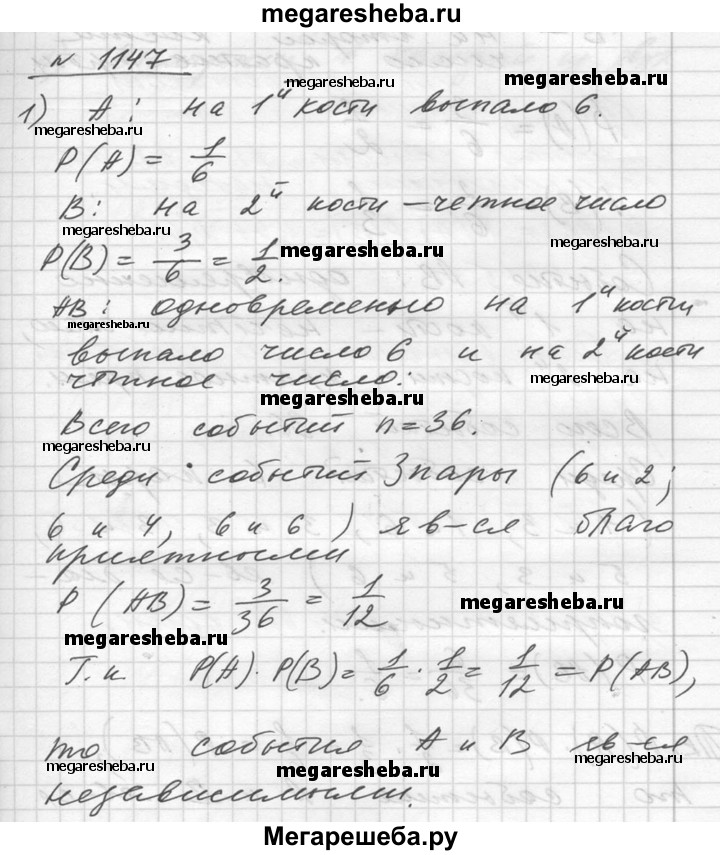 megaresheba.ru
№ 1147
megaresheba.ru megaresheba.ru
1) А: на 1й кости выпало 6.
megaresheba.ru megaresheba.ru
P(A) = 1/6
В: на 2й кости – четное число
megaresheba.ru
P(B) = 3/6 = 1/2.
megaresheba.ru
АВ: одновременно на 1й кости
megaresheba.ru
выпало число 6 и на 2й кости
четное число:
megaresheba.ru
megaresheba.ru
Всего событий n = 36.
megaresheba.ru
Среди событий 3 пары (6 и 2;
6 и 4, 6 и 6) яв-ся благо
приятными
P(AB) = 3/36 = 1/12
megaresheba.ru
megaresheba.ru
Т.к P(A)·P(B) = 1/6 · 1/2 = 1/12 = P(AB),
то события А и В яв-ся
megaresheba.ru megaresheba.ru megaresheba.ru
независимыми.
Мегарешеба.ру